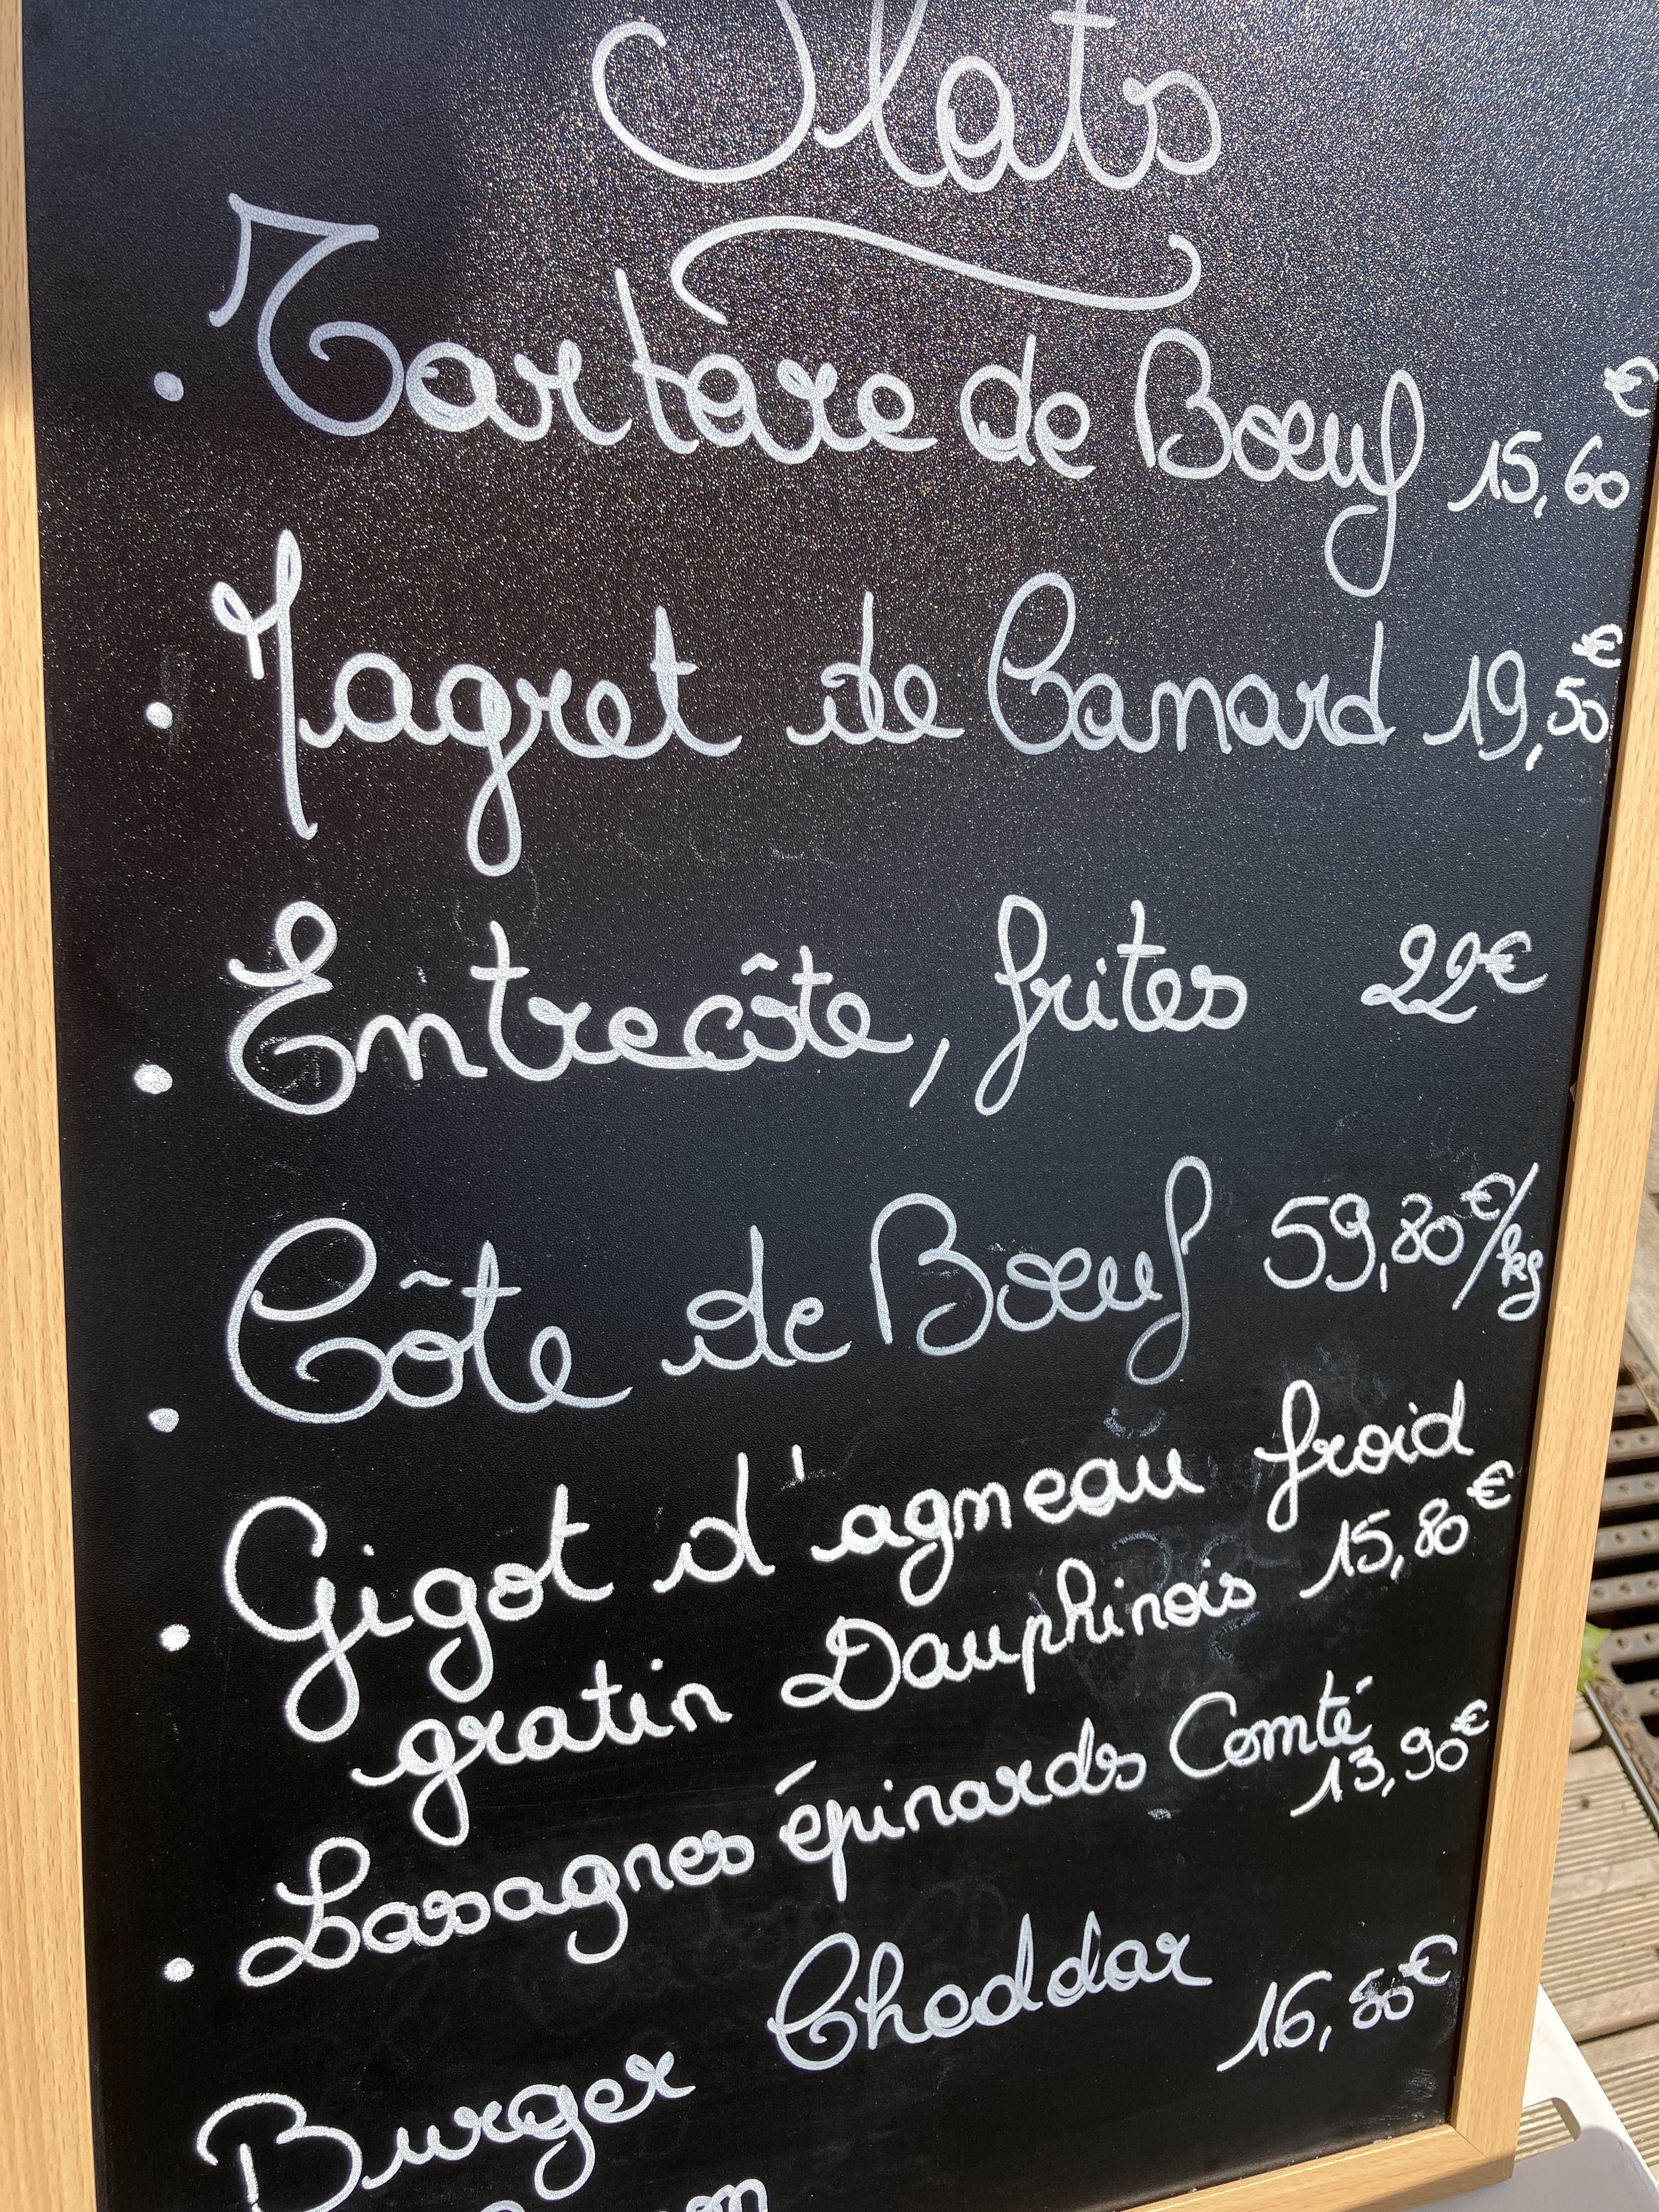 Plats
. Tartare de Boeuf 15,60€
. Magret de Canard 19,50€
. Entrecôte, frites 22€
. Côte de Boeuf 59,80€/kg
. Gigot d'agneau froid
gratin Dauphinois 15,80€
. Lasagnes épinards Comté
13,90€
Burger Cheddar 16,50€